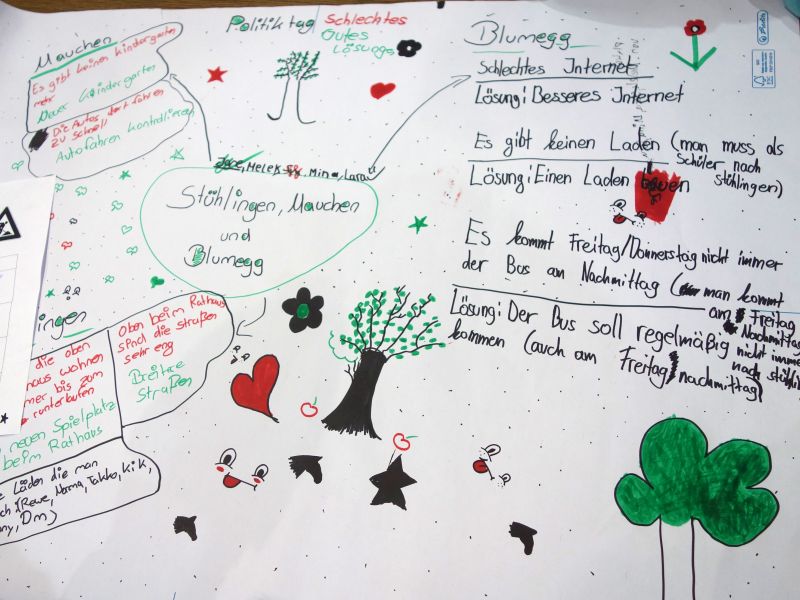 Politiktag
Schlechtes
Gutes
Lösungs
Mauchen
Es gibt keinen kindergarten
mehr
Neuer Kindergarten
Die Autos dort fahren
zu schnell
Autofahren kontrollieren
Melek Mina, Lara
Stühlingen, Mauchen
und
Blumegg
Blumegg
Schlechtes Internet
Lösung: Besseres Internet
Es gibt keinen Laden (man muss als
Schüler nach
stühlingen)
Lösung: Einen Laden bauen
Es kommt Freitag/Donnerstag nicht immer
der Bus am Nachmittag (man kommt
am Freitag
Nachmittag
nicht immer
nach stühli
Lösung: Der Bus soll regelmäßig
kommen (auch am Freitag nachmittag)
ingen
die oben
haus wohnen
mer bis zum
runterlaufen
neuen Spielplatz
beim Rathaus
Oben beim Rathaus
sind die straßen
sehr eng
Breitre
Straßen
Läden die man
(Rewe, Norma, Takko, Kik,
ny, Dm)